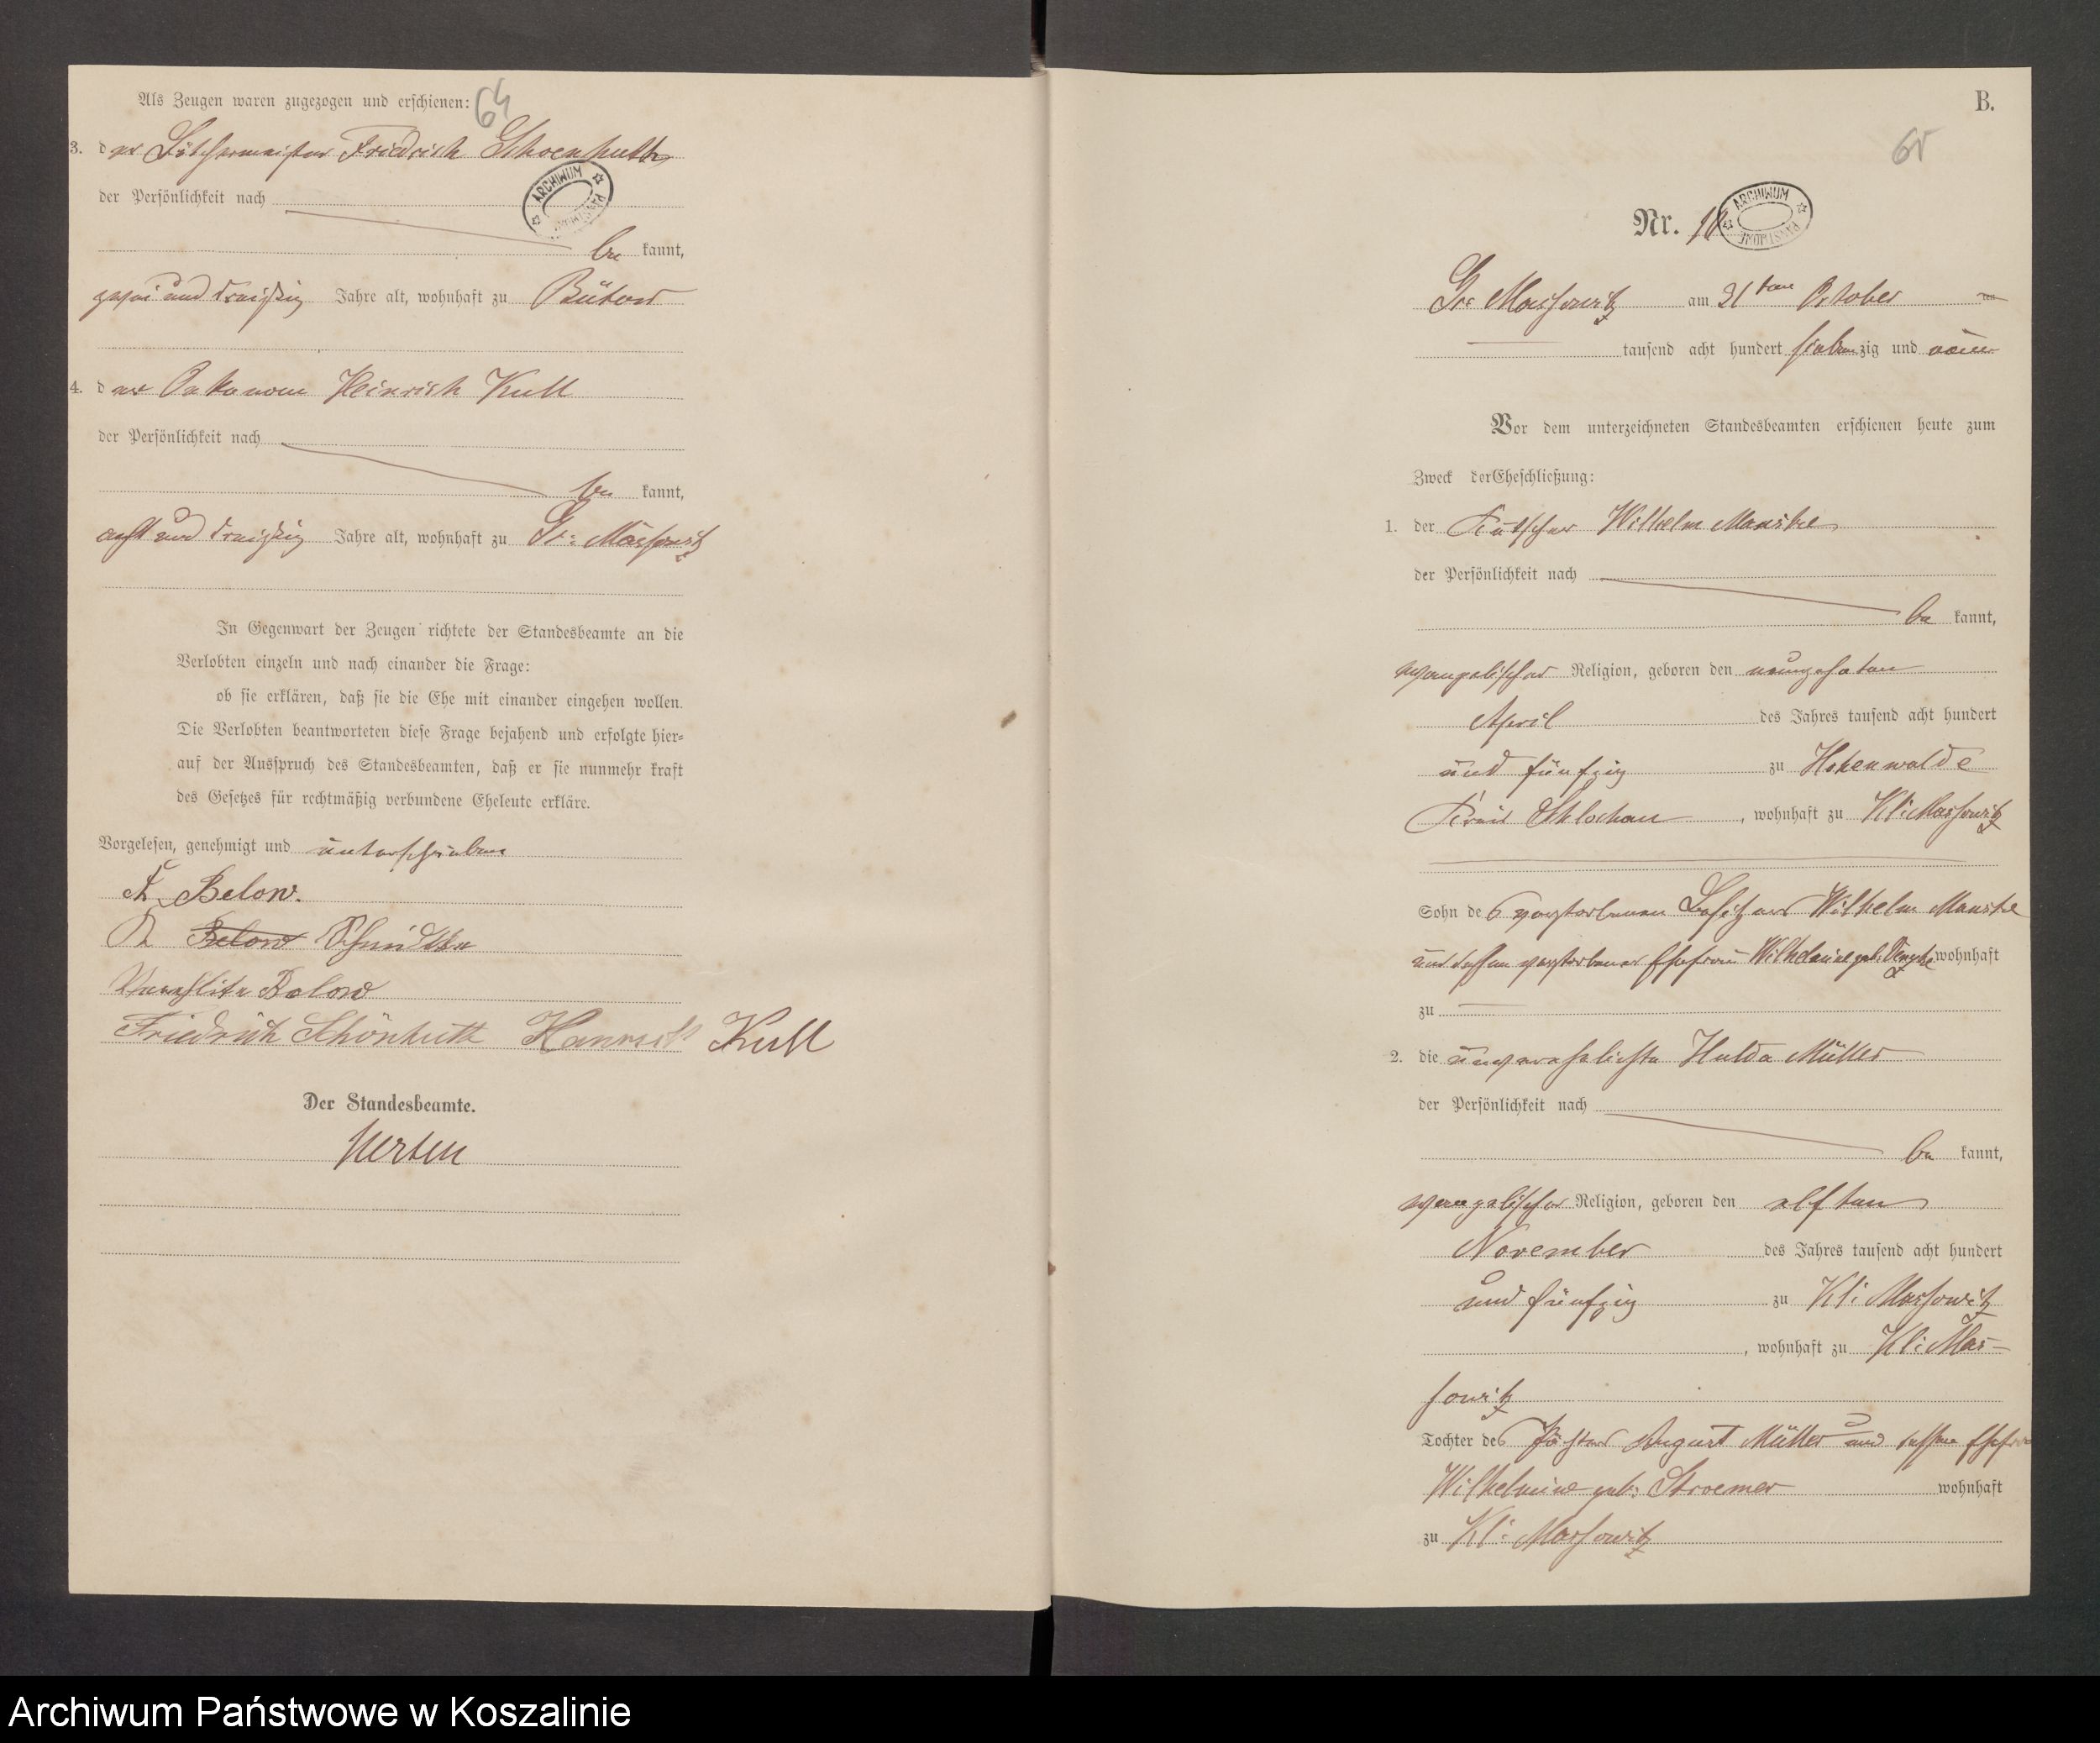 Als Zeugen waren zugezogen und erschienen:
64
3. der Böttchermeister Friedrich Schoenhutte
der Persönlichkeit nach
ARCHIWUM PAŃSTWOWE
be kannt,
zwei und dreißig Jahre alt, wohnhaft zu Bütow
4. der Oekonom Heinrich Kull
der Persönlichkeit nach
be kannt,
acht und dreißig Jahre alt, wohnhaft zu Gr: Massowitz
In Gegenwart der Zeugen richtete der Standesbeamte an die
Verlobten einzeln und nach einander die Frage:
ob sie erklären, daß sie die Ehe mit einander eingehen wollen.
Die Verlobten beantworteten diese Frage bejahend und erfolgte hier-
auf der Ausspruch des Standesbeamten, daß er sie nunmehr kraft
des Gesetzes für rechtmäßig verbundene Eheleute erkläre.
Vorgelesen, genehmigt und unterschrieben
Below.
Below
Below
Friedrich Schönhutt Kull
Der Standesbeamte.
B.
65
Nr.
ARCHIWUM PAŃSTWOWE
Gr: Massowitz am 21ten October
tausend acht hundert siebenzig und neun
Vor dem unterzeichneten Standesbeamten erschienen heute zum
Zweck der Eheschließung:
1. der Kutscher Wilhelm Manske
der Persönlichkeit nach
be kannt,
evangelischer Religion, geboren den neunzehnten
April des Jahres tausend acht hundert
und fünfzig zu Hohenwalde
Kreis Schlochau, wohnhaft zu Kl: Massowitz
Sohn des verstorbenen Besitzers Wilhelm Manske
und dessen verstorbener Ehefrau Wilhelmine geb: wohnhaft
zu
2. die unverehelichte Hulda Müller
der Persönlichkeit nach
be kannt,
evangelischer Religion, geboren den elften
November des Jahres tausend acht hundert
und fünfzig zu Kl: Massowitz
, wohnhaft zu Kl: Mas-
sowitz
Tochter des August Müller und dessen Ehefrau
Wilhelmine geb: Stroemer wohnhaft
zu Kl: Massowitz
Archiwum Państwowe w Koszalinie